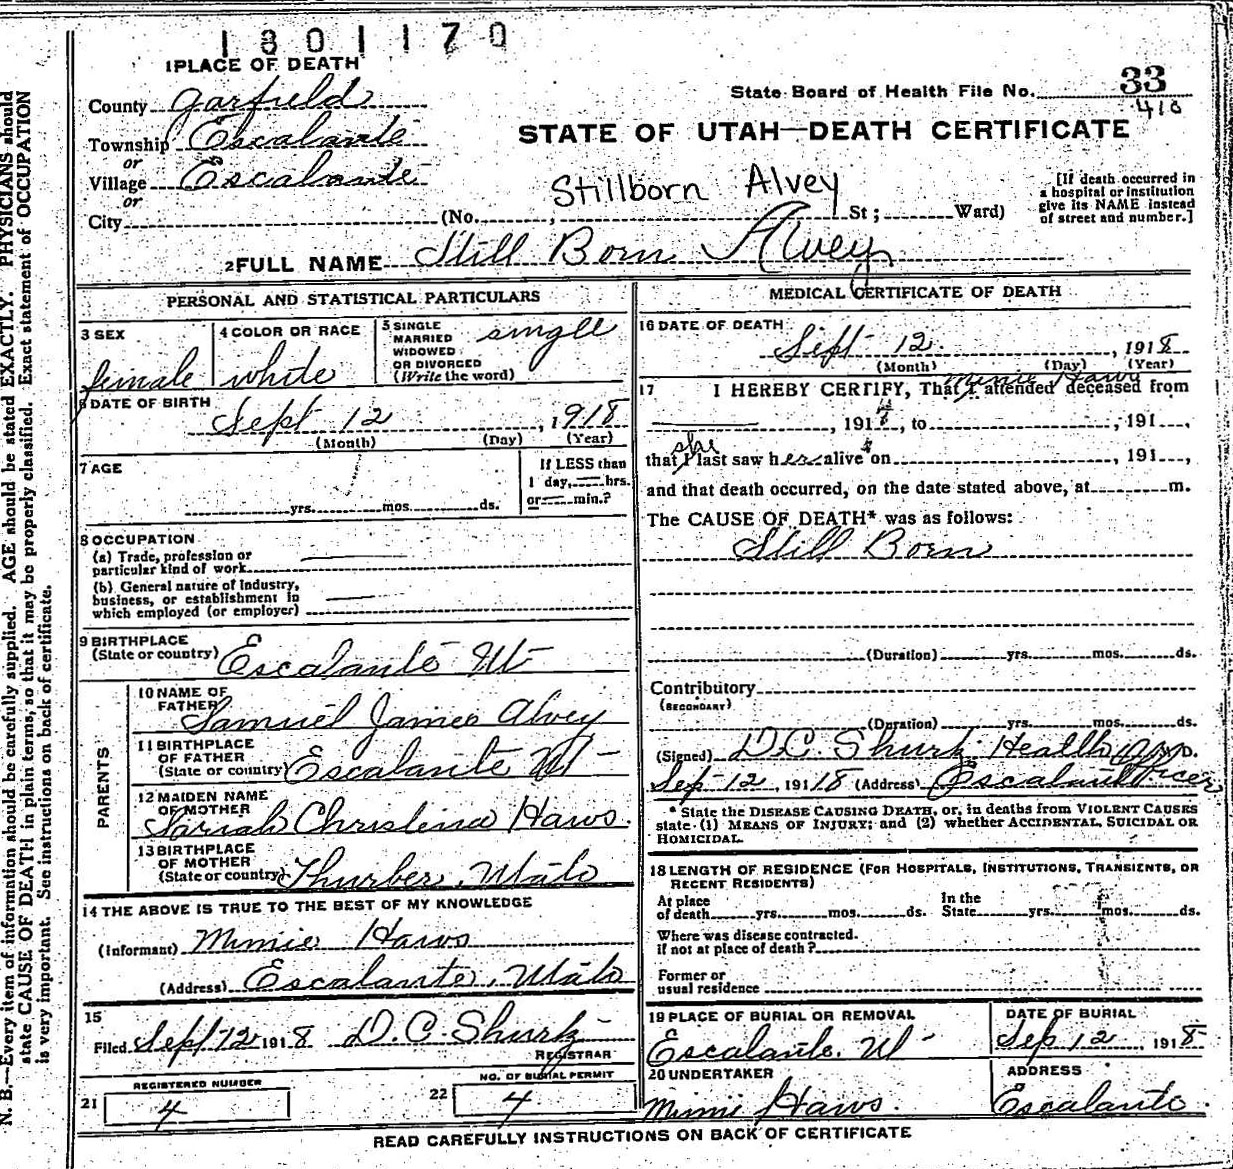 1801170
1 PLACE OF DEATH
County Garfield
State Board of Health File No. 33
410
Township Escalante
STATE OF UTAH—DEATH CERTIFICATE
or
Village Escalante
or
Stillborn Alvey
[If death occurred in a hospital or institution give its NAME instead of street and number.]
City (No. , St; Ward)
2 FULL NAME Still Born Alvey
PERSONAL AND STATISTICAL PARTICULARS
3 SEX
female
4 COLOR OR RACE
white
5 SINGLE
MARRIED
WIDOWED
OR DIVORCED
(Write the word)
single
6 DATE OF BIRTH
Sept 12, 1918
(Month) (Day) (Year)
7 AGE
yrs. mos. ds.
If LESS than
1 day, — hrs.
or — min.?
8 OCCUPATION
(a) Trade, profession or
particular kind of work
(b) General nature of industry,
business, or establishment in
which employed (or employer)
9 BIRTHPLACE
(State or country) Escalante Ut
PARENTS
10 NAME OF
FATHER Samuel James Alvey
11 BIRTHPLACE
OF FATHER
(State or country) Escalante Ut
12 MAIDEN NAME
OF MOTHER Sariah Christina Haws.
13 BIRTHPLACE
OF MOTHER
(State or country) Thurber, Utah
14 THE ABOVE IS TRUE TO THE BEST OF MY KNOWLEDGE
(Informant) Minnie Haws
(Address) Escalante, Utah
15
Filed Sept 12 1918 D.C. Shurtz
REGISTRAR
REGISTERED NUMBER
21 4
NO. OF BURIAL PERMIT
22 4
MEDICAL CERTIFICATE OF DEATH
16 DATE OF DEATH
Sept 12, 1918
(Month) (Day) (Year)
Minie Haws
17 I HEREBY CERTIFY, That I attended deceased from
, 191 , to , 191 ,
she
that I last saw her alive on , 191 ,
and that death occurred, on the date stated above, at m.
The CAUSE OF DEATH* was as follows:
Still Born
(Duration) yrs. mos. ds.
Contributory
(SECONDARY)
(Duration) yrs. mos. ds.
(Signed) D.C. Shurtz Health
Officer
Sep 12, 19118 (Address) Escalante
* State the DISEASE CAUSING DEATH, or, in deaths from VIOLENT CAUSES
state (1) MEANS OF INJURY; and (2) whether ACCIDENTAL, SUICIDAL OR
HOMICIDAL.
18 LENGTH OF RESIDENCE (FOR HOSPITALS, INSTITUTIONS, TRANSIENTS, OR
RECENT RESIDENTS)
At place
of death yrs. mos. ds.
In the
State yrs. mos. ds.
Where was disease contracted.
if not at place of death?
Former or
usual residence
19 PLACE OF BURIAL OR REMOVAL
Escalante. Ut
DATE OF BURIAL
Sep 12, 1918
20 UNDERTAKER
Minnie Haws.
ADDRESS
Escalante.
READ CAREFULLY INSTRUCTIONS ON BACK OF CERTIFICATE
N. B.—Every item of information should be carefully supplied. AGE should be stated EXACTLY. PHYSICIANS should
state CAUSE OF DEATH in plain terms, so that it may be properly classified. Exact statement of OCCUPATION
is very important. See instructions on back of certificate.